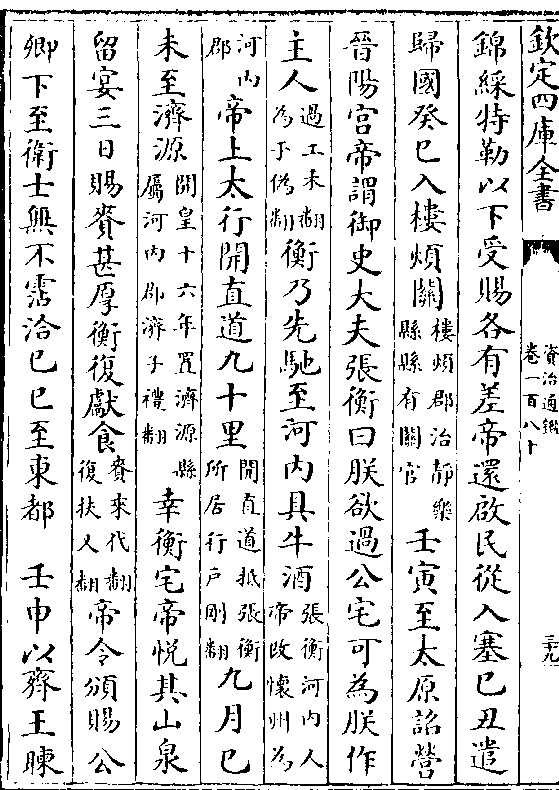 欽定四庫全書
資治通鑑
卷一百八十
三十九
錦綵特勒以下受賜各有差帝還啟民從入塞己丑遣
歸國癸巳入樓煩關樓煩郡治靜樂縣縣有關官壬寅至太原詔營
晉陽宫帝謂御史大夫張衡曰朕欲過公宅可為朕作
主人過工禾翻為于偽翻衡乃先馳至河内具牛酒張衡河内人帝改懷州為
河内郡帝上太行開直道九十里開直道抵張衡所居行户剛翻九月己
未至濟源開皇十六年置濟源縣屬河内郡濟子禮翻幸衡宅帝悦其山泉
留宴三日賜賚甚厚衡復獻食賚來代翻復扶又翻帝令頒賜公
卿下至衛士無不霑洽己巳至東都　壬申以齊王暕